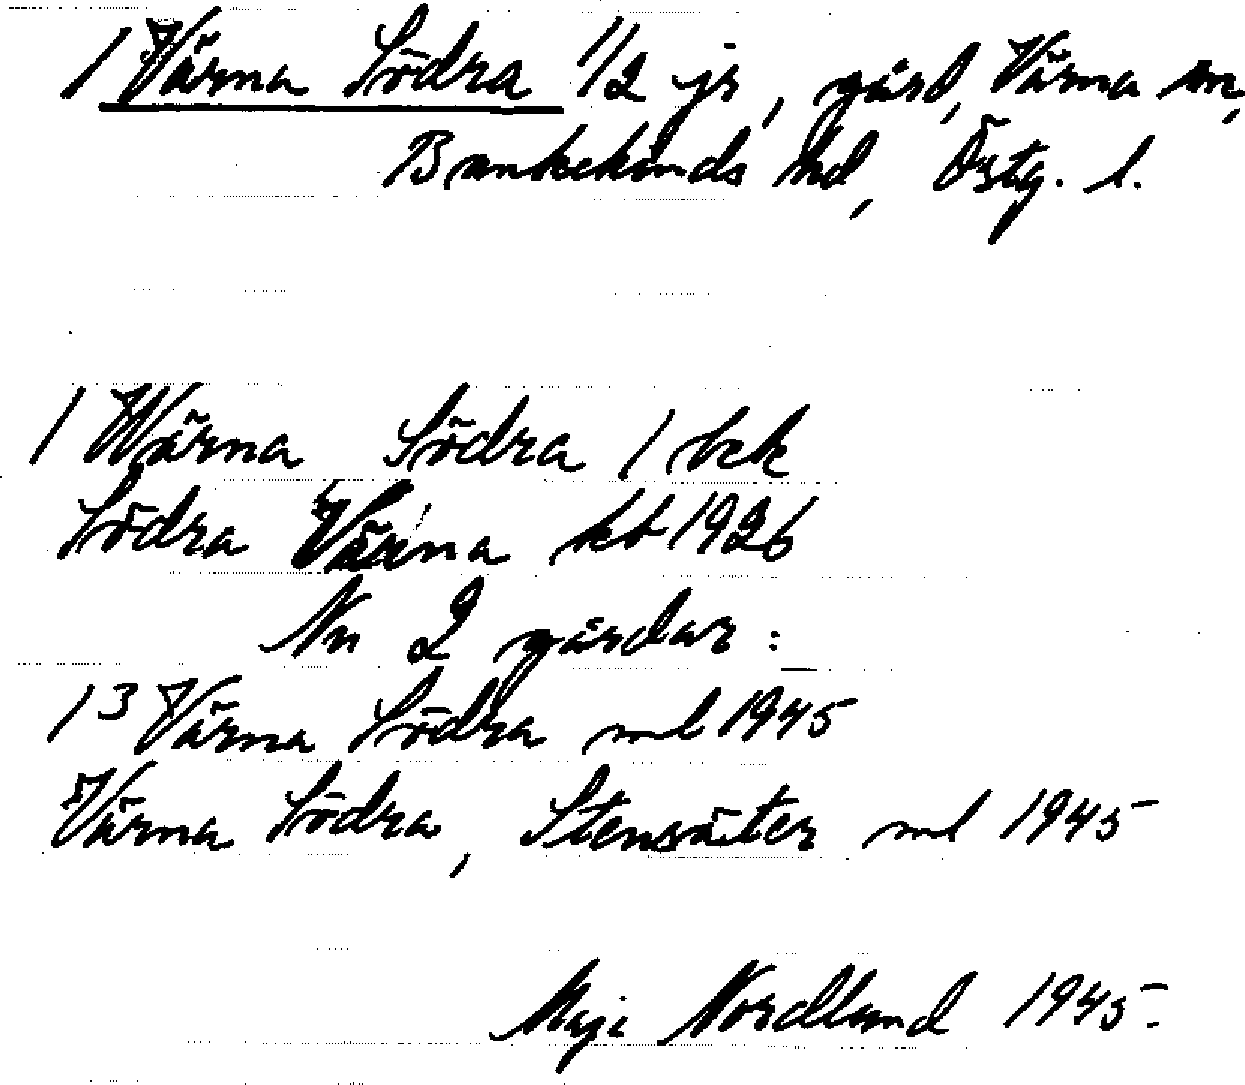 1 Värna Södra 1/2 jr, gård, Värna sn,
Bankekinds hd, Östg. l.
1 Wärna Södra / bek
Södra Värna kb 1926
Nu 2 gårdar:
1³ Värna Södra ml 1945
Värna Södra, Stensäter ml 1945
Maja Nordlund 1945.